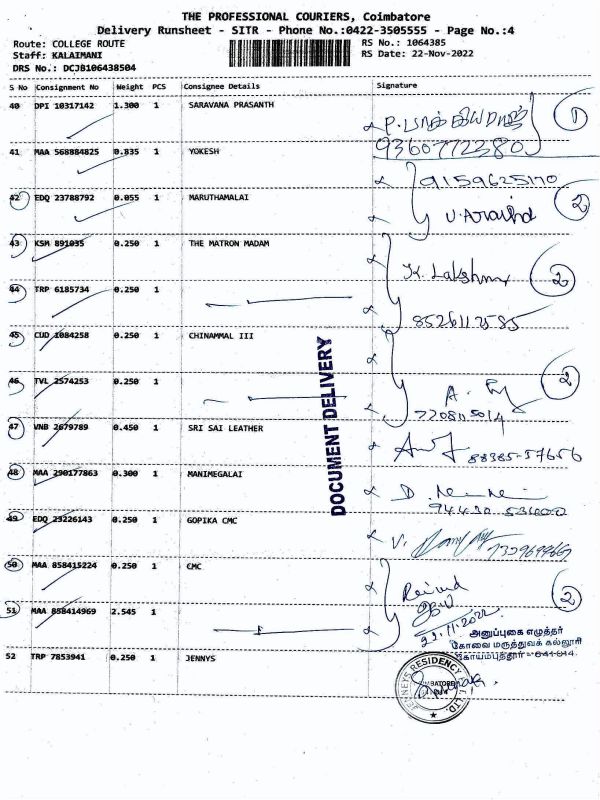 THE PROFESSIONAL COURIERS, Coimbatore
Delivery Runsheet - SITR - Phone No.:0422-3505555 - Page No.:4
Route: COLLEGE ROUTE
RS No.: 1064385
Staff: KALAIMANI
RS Date: 22-Nov-2022
DRS No.: DCJB106438504
S No Consignment No Weight PCS Consignee Details Signature
40 DPI 10317142 1.300 1 SARAVANA PRASANTH
1
9360772380
41 MAA 568884825 0.835 1 YOKESH
9159625170
42 EDQ 23788792 0.055 1 MARUTHAMALAI
2
43 KSM 891035 0.250 1 THE MATRON MADAM
K. Lakshmi
2
44 TRP 6185734 0.250 1
45 CUD 1084258 0.250 1 CHINAMMAL III
46 TVL 2574253 0.250 1
2
47 VNB 2679789 0.450 1 SRI SAI LEATHER
88385-57656
48 MAA 290177863 0.300 1 MANIMEGALAI
49 EDQ 23226143 0.250 1 GOPIKA CMC
50 MAA 858415224 0.250 1 CMC
2
51 MAA 858414969 2.545 1
22.11.2022
அனுப்புகை எழுத்தர்
கோவை மருத்துவக் கல்லூரி
கோயம்புத்தூர் - 641 014.
52 TRP 7853941 0.250 1 JENNYS
DOCUMENT DELIVERY